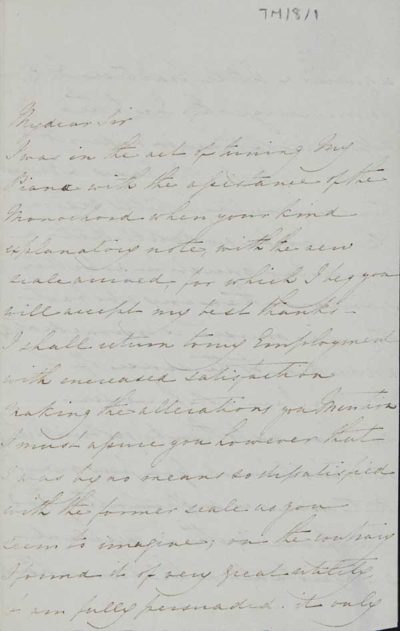 7M/8/1
My dear Sir
I was in the act of tuning My
Piano with the assistance of the
Monochord when your kind
explanatory note, with the new
scale arrived for which I beg you
will accept my best thanks –
I shall return to my Employment
with increased satisfaction
making the alterations you Mention
I must assure you however that
I was by no means so dissatisfied
with the former scale as you
seem to imagine; on the contrary
I found it of very great utility,
& am fully persuaded it only